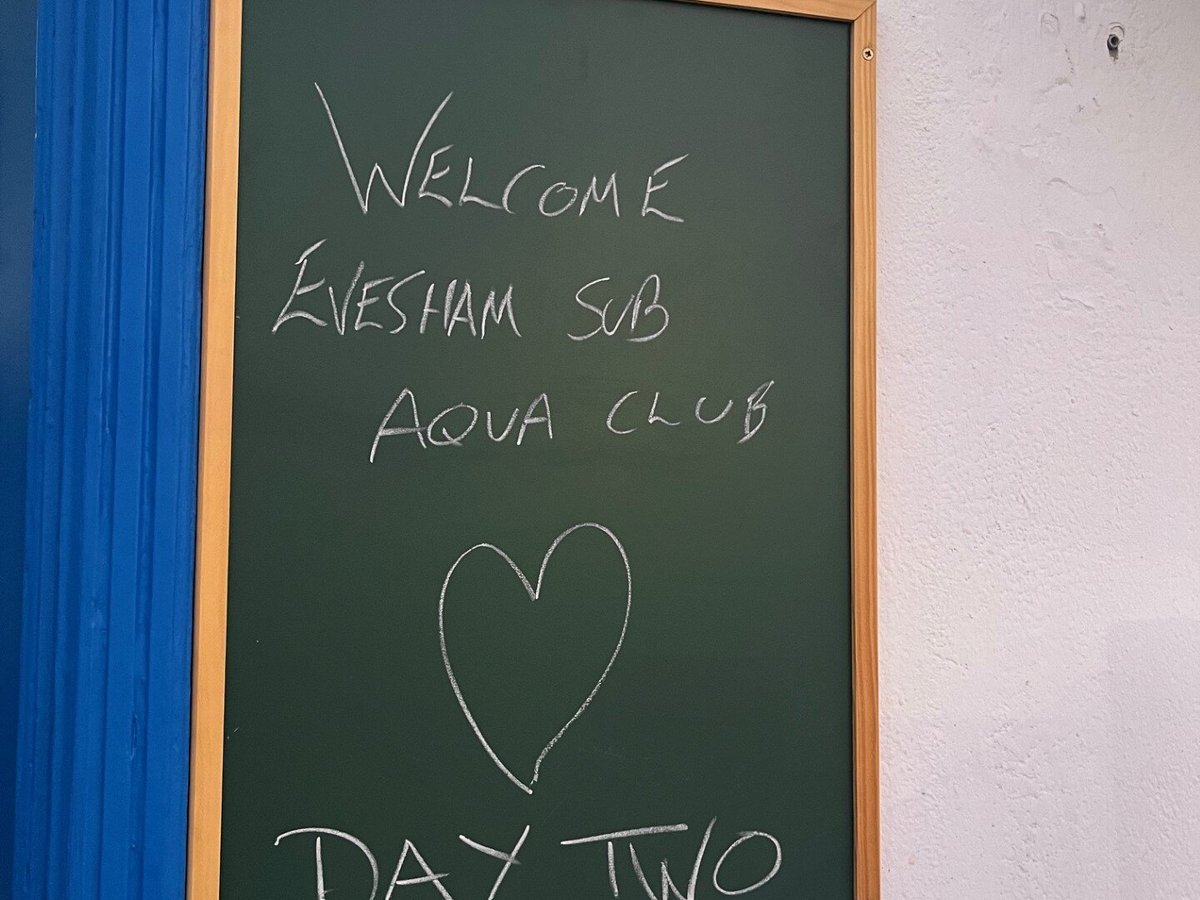 WELCOME
EVESHAM SUB
AQUA CLUB
DAY TWO